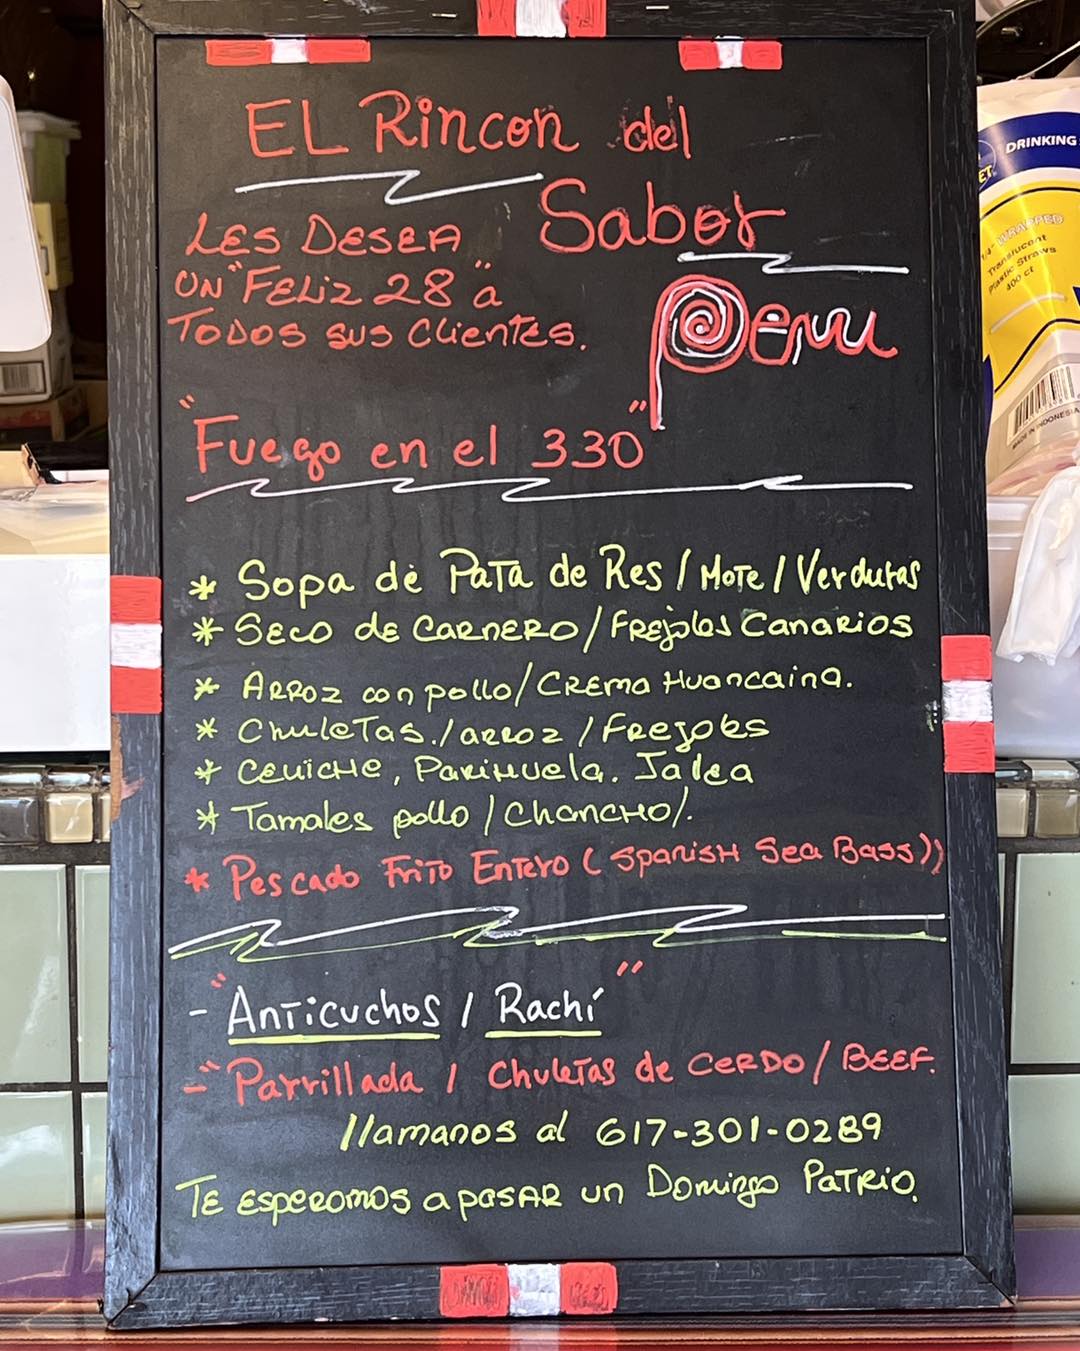 EL Rincon del
Sabor
Peru
LES DESEA
UN "FELIZ 28" a
TODOS sus Clientes.
"Fuego en el 330"
* Sopa de PaTa de Res / MoTe / Verduras
* SECO DE CARNERO / FREJoles CanaRIOS
* ARROZ con pollo / CREMa Huancaina.
* ChuleTas. / arroz / FREJoles
* CEVICHE, PARIHUela. Jalea
* Tamales pollo / ChanCHO /.
* Pescado FriTo EnTero ( SpanisH Sea Bass))
- "AnTicuchos / Rachi"
- "Parrillada / ChuleTas de CERDO / BEEF.
llamanos al 617-301-0289
TE ESPERamos a pasar un Domingo PaTRio.
DRINKING
ET
1/4" WRAPPED
Translucent
Plastic Straws
400 ct
MADE IN INDONESIA